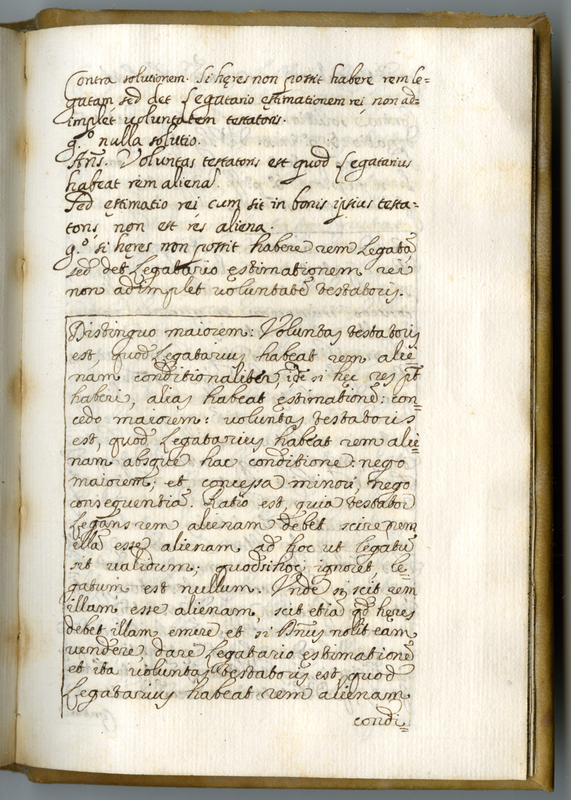 Contra solutionem. Si hęres non possit habere rem le=
gatam sed det Legatario ęstimationem rei non ad=
implet voluntatem testatoris.
g.º nulla solutio.
Ans. Voluntas testatoris est quod Legatarius
habeat rem aliena.
Sed ęstimatio rei cum sit in bonis ipsius testa=
toris non est res aliena.
g.º si hęres non possit habere rem Legatã
sed det Legatario ęstimationem rei
non adimplet voluntatẽ testatoris.
Distinguo maiorem: Voluntas testatoris
est, quod Legatarius habeat rem alie=
nam conditionaliter, ide si hęc res pt
haberi, alias habeat ęstimationẽ: con=
cedo maiorem: voluntas testatoris
est, quod Legatarius habeat rem alie=
nam absque hac conditione: nego
maiorem; et concessa minori, nego
consequentiã. Ratio est, quia testator
Legans rem alienam debet scire rem
illã esse alienam ad hoc ut legatũ
sit validum; quod si hoc ignoret, le=
gatum est nullum. Unde si scit rem
illam esse alienam, scit etiã qd hęres
debet illam emere et si Dnus nolit eam
vendere dare Legatario ęstimationẽ
et ita voluntas testatoris est, quod
Legatarius habeat rem alienam
condi=